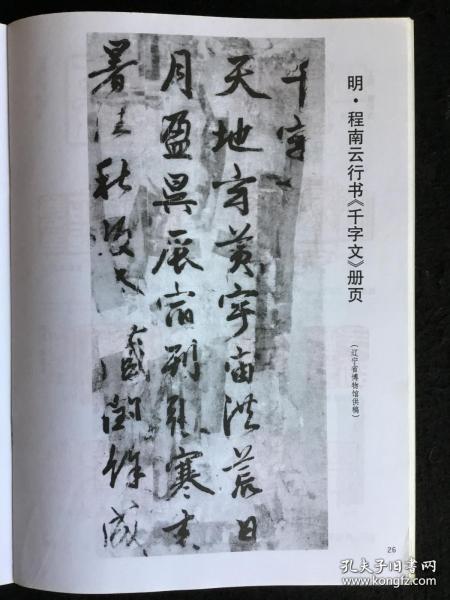 明·程南云行书《千字文》册页
(辽宁省博物馆供稿)
千字文
天地玄黃宇宙洪荒日
月盈昃辰宿列張寒来
暑往秋收冬藏閏餘成
26
孔夫子旧书网
www.kongfz.com